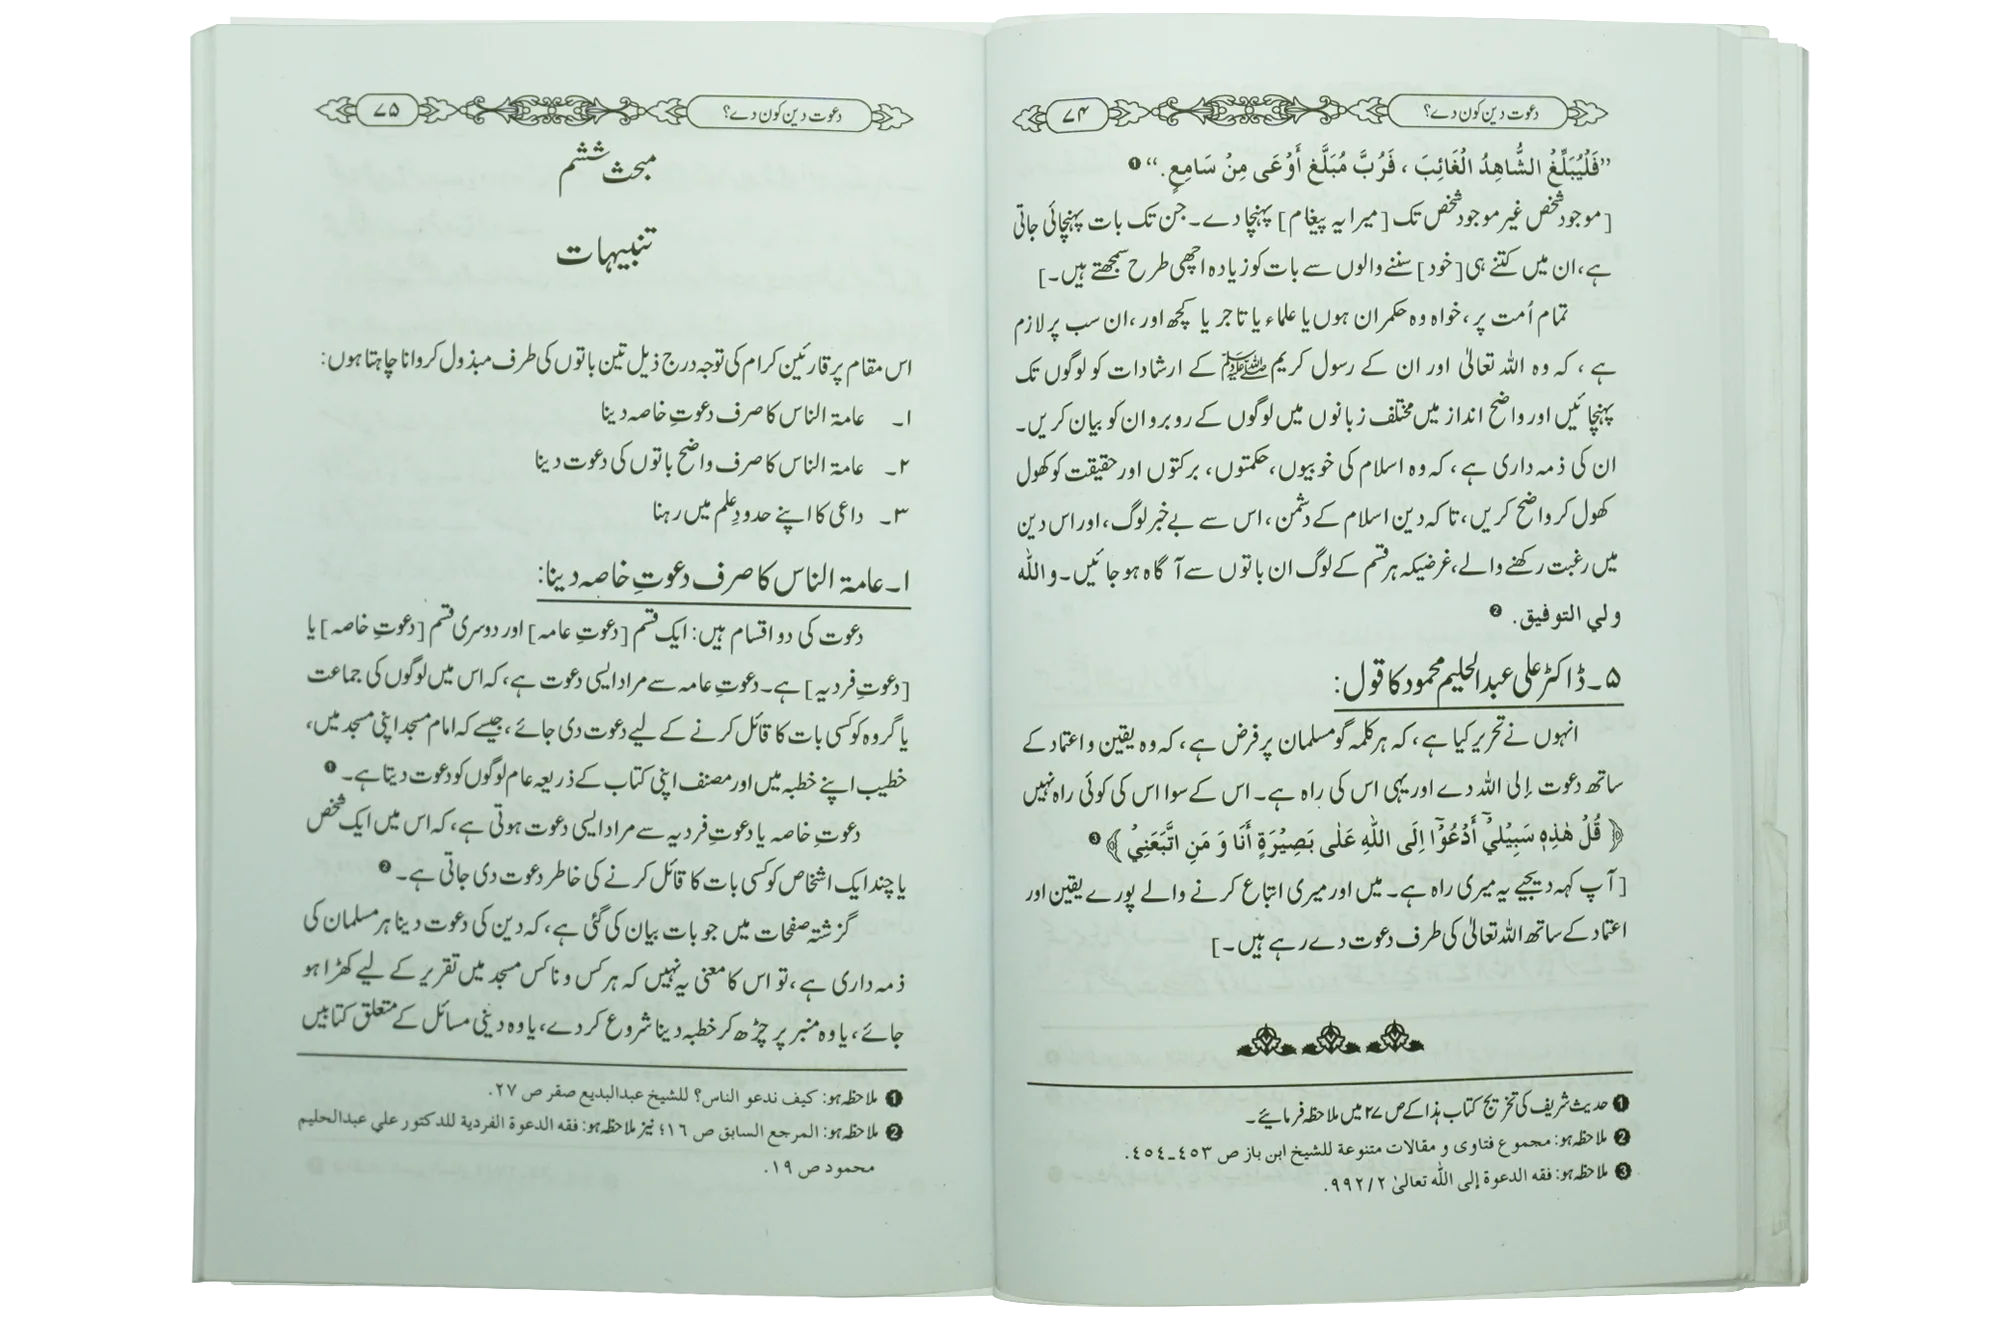 دعوت دین کون دے؟
۷۴
”فَلْيُبَلِّغْ الشَّاهِدُ الْغَائِبَ ، فَرُبَّ مُبَلَّغٍ أَوْعَى مِنْ سَامِعٍ .“ ❶
[موجود شخص غیر موجود شخص تک [میرا یہ پیغام] پہنچا دے۔ جن تک بات پہنچائی جاتی
ہے، ان میں کتنے ہی [خود] سننے والوں سے بات کو زیادہ اچھی طرح سمجھتے ہیں۔]
تمام اُمت پر، خواہ وہ حکمران ہوں یا علماء یا تاجر یا کچھ اور، ان سب پر لازم
ہے، کہ وہ اللہ تعالیٰ اور ان کے رسول کریم ﷺ کے ارشادات کو لوگوں تک
پہنچائیں اور واضح انداز میں مختلف زبانوں میں لوگوں کے روبرو ان کو بیان کریں۔
ان کی ذمہ داری ہے، کہ وہ اسلام کی خوبیوں، حکمتوں، برکتوں اور حقیقت کو کھول
کھول کر واضح کریں، تاکہ دین اسلام کے دشمن، اس سے بے خبر لوگ، اور اس دین
میں رغبت رکھنے والے، غرضیکہ ہر قسم کے لوگ ان باتوں سے آگاہ ہو جائیں۔ واللہ
ولي التوفيق. ❷
۵۔ ڈاکٹر علی عبدالحلیم محمود کا قول:
انہوں نے تحریر کیا ہے، کہ ہر کلمہ گو مسلمان پر فرض ہے، کہ وہ یقین و اعتماد کے
ساتھ دعوت إلی اللہ دے اور یہی اس کی راہ ہے۔ اس کے سوا اس کی کوئی راہ نہیں
﴿ قُلْ هٰذِهٖ سَبِيْلِيْٓ أَدْعُوْٓا اِلَى اللّٰهِ عَلٰى بَصِيْرَةٍ أَنَا وَ مَنِ اتَّبَعَنِيْ ﴾ ❸
[آپ کہہ دیجیے یہ میری راہ ہے۔ میں اور میری اتباع کرنے والے پورے یقین اور
اعتماد کے ساتھ اللہ تعالیٰ کی طرف دعوت دے رہے ہیں۔]
❶ حدیث شریف کی تخریج کتاب ہذا کے ص ۲۷ میں ملاحظہ فرمائیے۔
❷ ملاحظہ ہو: مجموع فتاوى و مقالات متنوعة للشيخ ابن باز ص ٤٥٣-٤٥٤.
❸ ملاحظہ ہو: فقه الدعوة إلى الله تعالىٰ ٩٩٢/٢.
دعوت دین کون دے؟
۷۵
مبحث ششم
تنبیہات
اس مقام پر قارئین کرام کی توجہ درج ذیل تین باتوں کی طرف مبذول کروانا چاہتا ہوں:
۱۔ عامۃ الناس کا صرف دعوتِ خاصہ دینا
۲۔ عامۃ الناس کا صرف واضح باتوں کی دعوت دینا
۳۔ داعی کا اپنے حدودِ علم میں رہنا
۱۔ عامۃ الناس کا صرف دعوتِ خاصہ دینا:
دعوت کی دو اقسام ہیں: ایک قسم [دعوتِ عامہ] اور دوسری قسم [دعوتِ خاصہ] یا
[دعوتِ فردیہ] ہے۔ دعوتِ عامہ سے مراد ایسی دعوت ہے، کہ اس میں لوگوں کی جماعت
یا گروہ کو کسی بات کا قائل کرنے کے لیے دعوت دی جائے، جیسے کہ امام مسجد اپنی مسجد میں،
خطیب اپنے خطبہ میں اور مصنف اپنی کتاب کے ذریعہ عام لوگوں کو دعوت دیتا ہے۔ ❶
دعوتِ خاصہ یا دعوتِ فردیہ سے مراد ایسی دعوت ہوتی ہے، کہ اس میں ایک شخص
یا چند ایک اشخاص کو کسی بات کا قائل کرنے کی خاطر دعوت دی جاتی ہے۔ ❷
گزشتہ صفحات میں جو بات بیان کی گئی ہے، کہ دین کی دعوت دینا ہر مسلمان کی
ذمہ داری ہے، تو اس کا معنی یہ نہیں کہ ہر کس و ناکس مسجد میں تقریر کے لیے کھڑا ہو
جائے، یا وہ منبر پر چڑھ کر خطبہ دینا شروع کر دے، یا وہ دینی مسائل کے متعلق کتابیں
❶ ملاحظہ ہو: كيف ندعو الناس؟ للشيخ عبدالبديع صقر ص ٢٧.
❷ ملاحظہ ہو: المرجع السابق ص ١٦؛ نیز ملاحظہ ہو: فقه الدعوة الفردية للدكتور علي عبدالحليم
محمود ص ١٩.